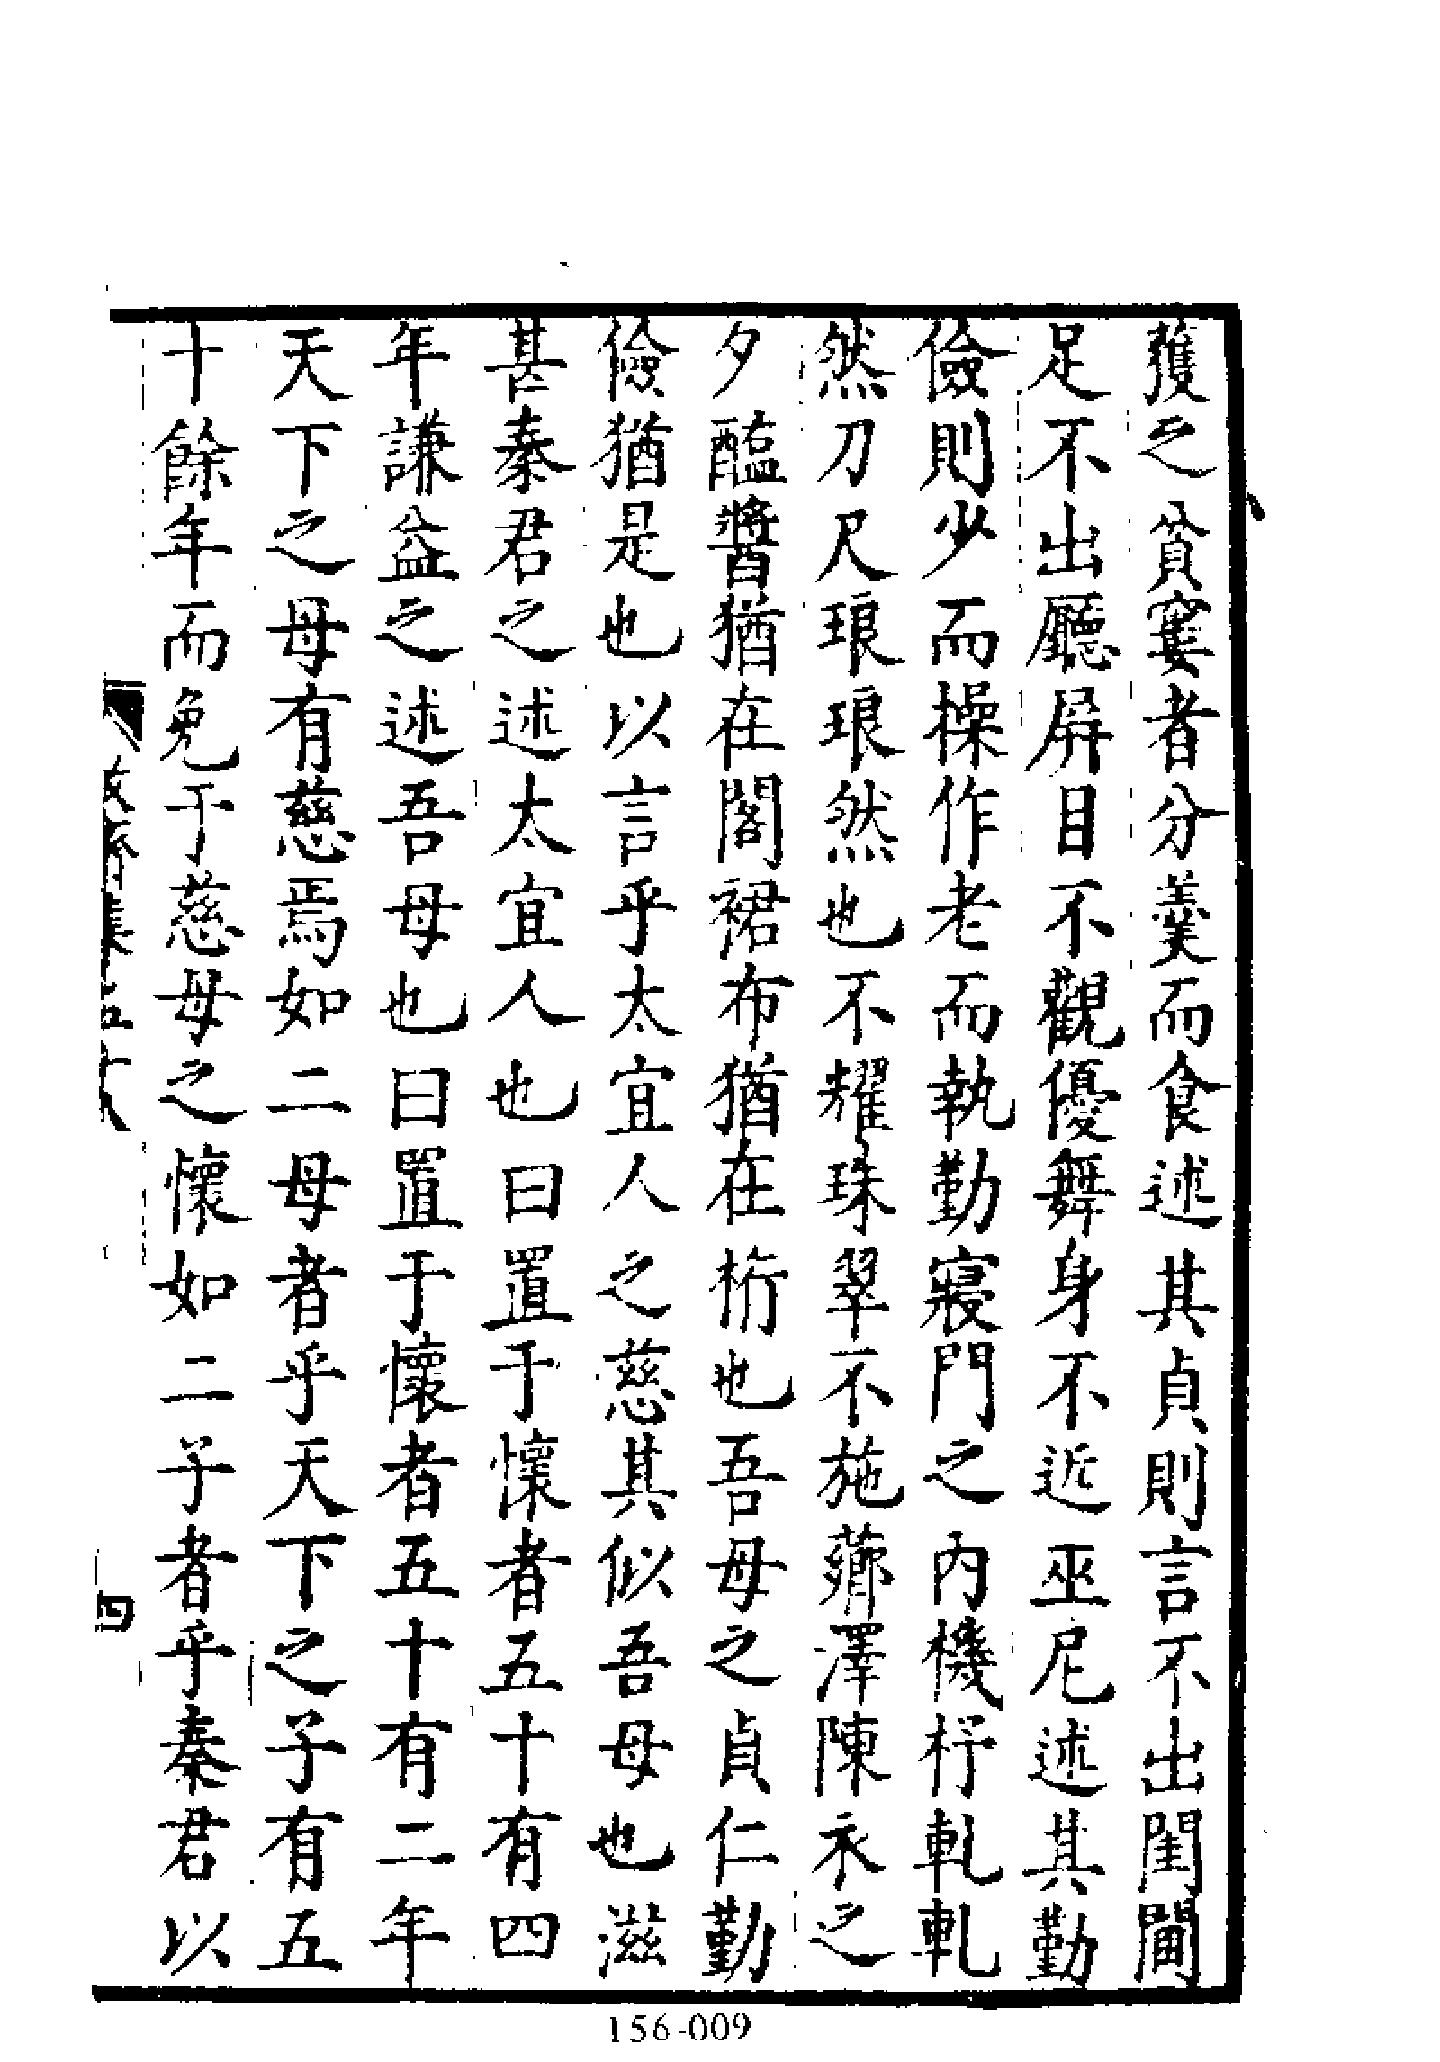 獲之貧窶者分羹而食述其貞則言不出閨閫
足不出廳屏目不觀優舞身不近巫尼述其勤
儉則少而操作老而執勤寢門之內機杼軋軋
然刀尺琅琅然也不耀珠翠不施薌澤陳衣之
夕醢醬猶在閣裙布猶在桁也吾母之貞仁勤
儉猶是也以言乎太宜人之慈其似吾母也滋
甚秦君之述太宜人也曰置于懷者五十有四
年謙益之述吾母也曰置于懷者五十有二年
天下之母有慈焉如二母者乎天下之子有五
十餘年而免于慈母之懷如二子者乎秦君以
牧齋集五十八
四
156-009